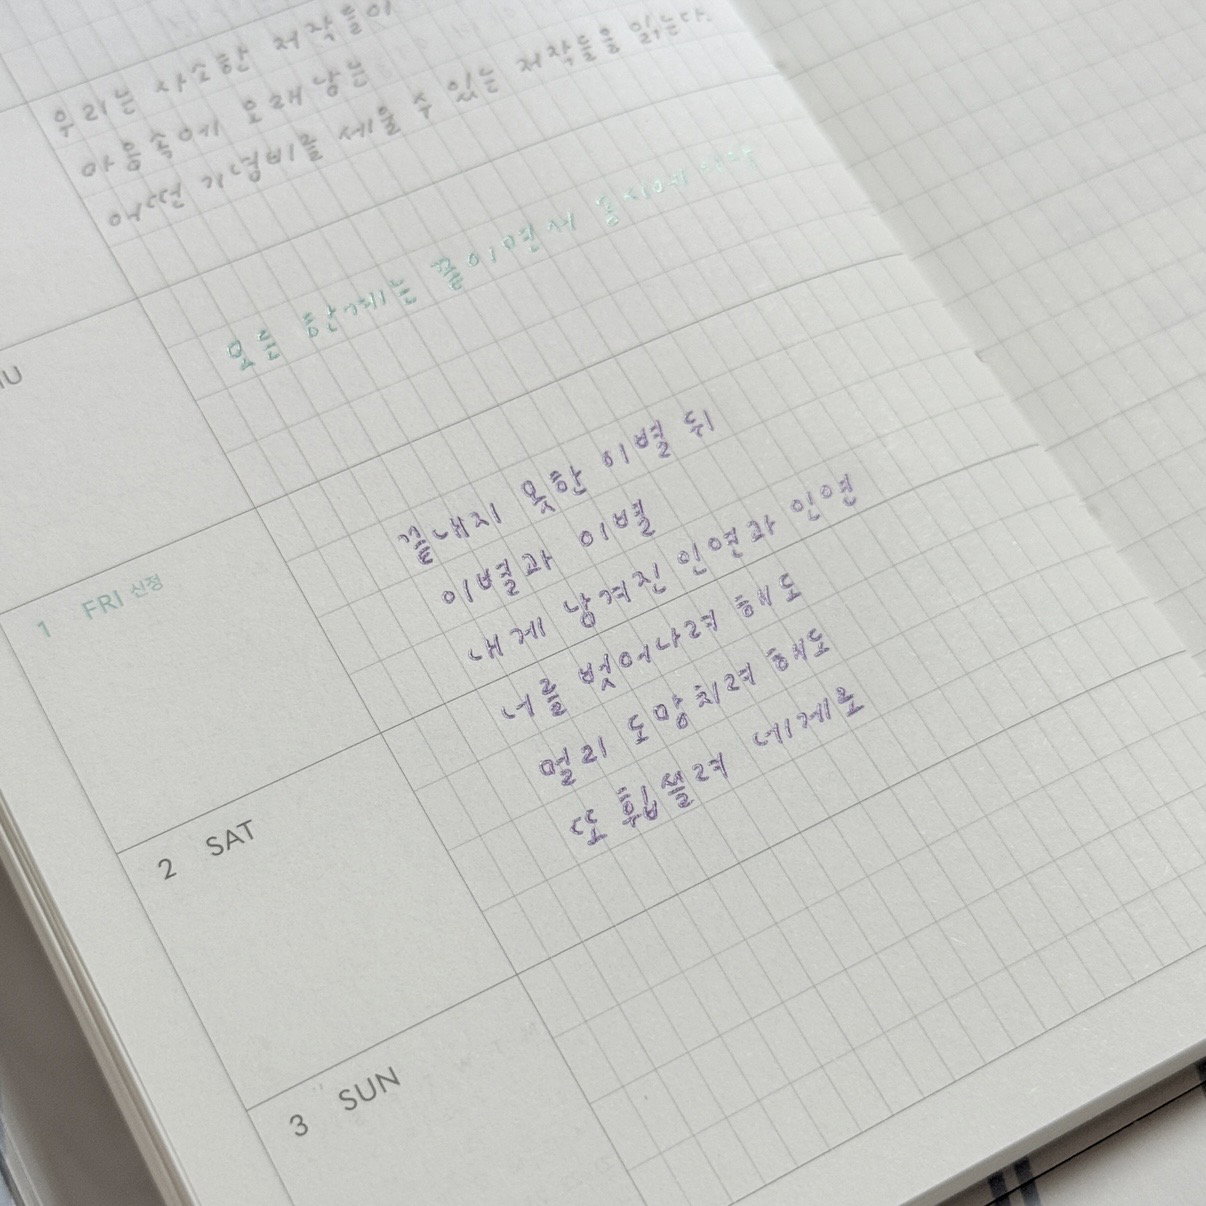 우리는 사소한 저작들이
마음속에 오래 남는
어떤 기념비를 세울 수 있는 저작들을 읽는다.
모든 단계는 끝이면서 동시에
1 FRI 신정
끝내지 못한 이별 뒤
이별과 이별
내게 남겨진 인연과 인연
너를 벗어나려 해도
멀리 도망치려 해도
또 휩쓸려 네게로
2 SAT
3 SUN